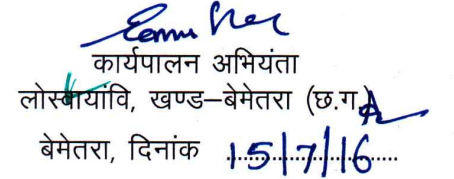 कार्यपालन अभियंता
लोस्वायांवि, खण्ड–बेमेतरा (छ.ग.)
बेमेतरा, दिनांक 15/7/16